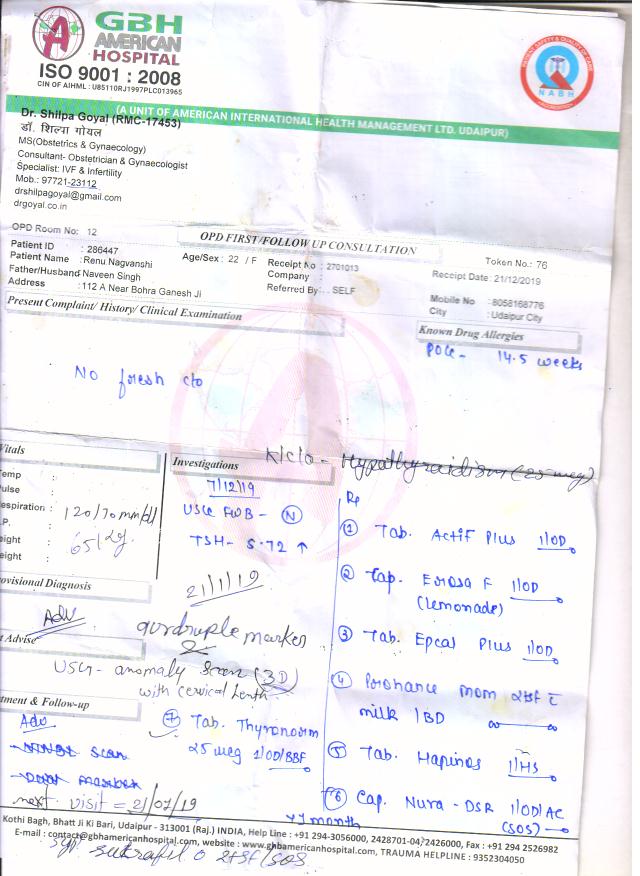 GBH
AMERICAN
HOSPITAL
ISO 9001 : 2008
CIN OF AIHML : U85110RJ1997PLC013965
PATIENT SAFETY & QUALITY OF CARE
NABH
(A UNIT OF AMERICAN INTERNATIONAL HEALTH MANAGEMENT LTD. UDAIPUR)
Dr. Shilpa Goyal (RMC-17453)
डॉ. शिल्पा गोयल
MS(Obstetrics & Gynaecology)
Consultant- Obstetrician & Gynaecologist
Specialist: IVF & Infertility
Mob.: 97721-23112
drshilpagoyal@gmail.com
drgoyal.co.in
OPD Room No: 12
OPD FIRST/FOLLOW UP CONSULTATION
Token No.: 76
Patient ID : 286447
Age/Sex : 22 / F
Receipt No : 2701013
Receipt Date: 21/12/2019
Patient Name : Renu Nagvanshi
Company :
Father/Husband Naveen Singh
Referred By: . SELF
Mobile No : 8058168776
Address : 112 A Near Bohra Ganesh Ji
City : Udaipur City
Present Complaint/ History/ Clinical Examination
Known Drug Allergies
POG - 14.5 weeks
No fresh c/o
K/c/o - Hypothyroidism (25 mcg)
Vitals
Temp :
Pulse :
Respiration : 120/70 mm/dl
.P. :
eight : 65 kg
eight :
Investigations
7/12/19
USG FWB - N
TSH - 5.72 ↑
21/1/19
Rx
1 Tab. Actif Plus 1/OD
2 Cap. F 1/OD
(lemonade)
3 Tab. Epcal Plus 1/OD
4 Prohance mom 2tsf c̄
milk 1BD
5 Tab. Hapinos 1/HS
6 Cap. Nura - DSR 1/OD/AC
(SOS)
x 1 month
ovisional Diagnosis
Adv
quadruple marker
t Advise
USG - anomaly scan (3D)
with cervical length
tment & Follow-up
7 Tab. Thyronorm
25 mcg 1/OD/BBF
Adv
NT/NB scan
marker
next visit = 21/01/19
Kothi Bagh, Bhatt Ji Ki Bari, Udaipur - 313001 (Raj.) INDIA, Help Line : +91 294-3056000, 2428701-04, 2426000, Fax : +91 294 2526982
E-mail : contact@gbhamericanhospital.com, website : www.gbhamericanhospital.com, TRAUMA HELPLINE : 9352304050
Syp sukrafil O 2tsf/SOS